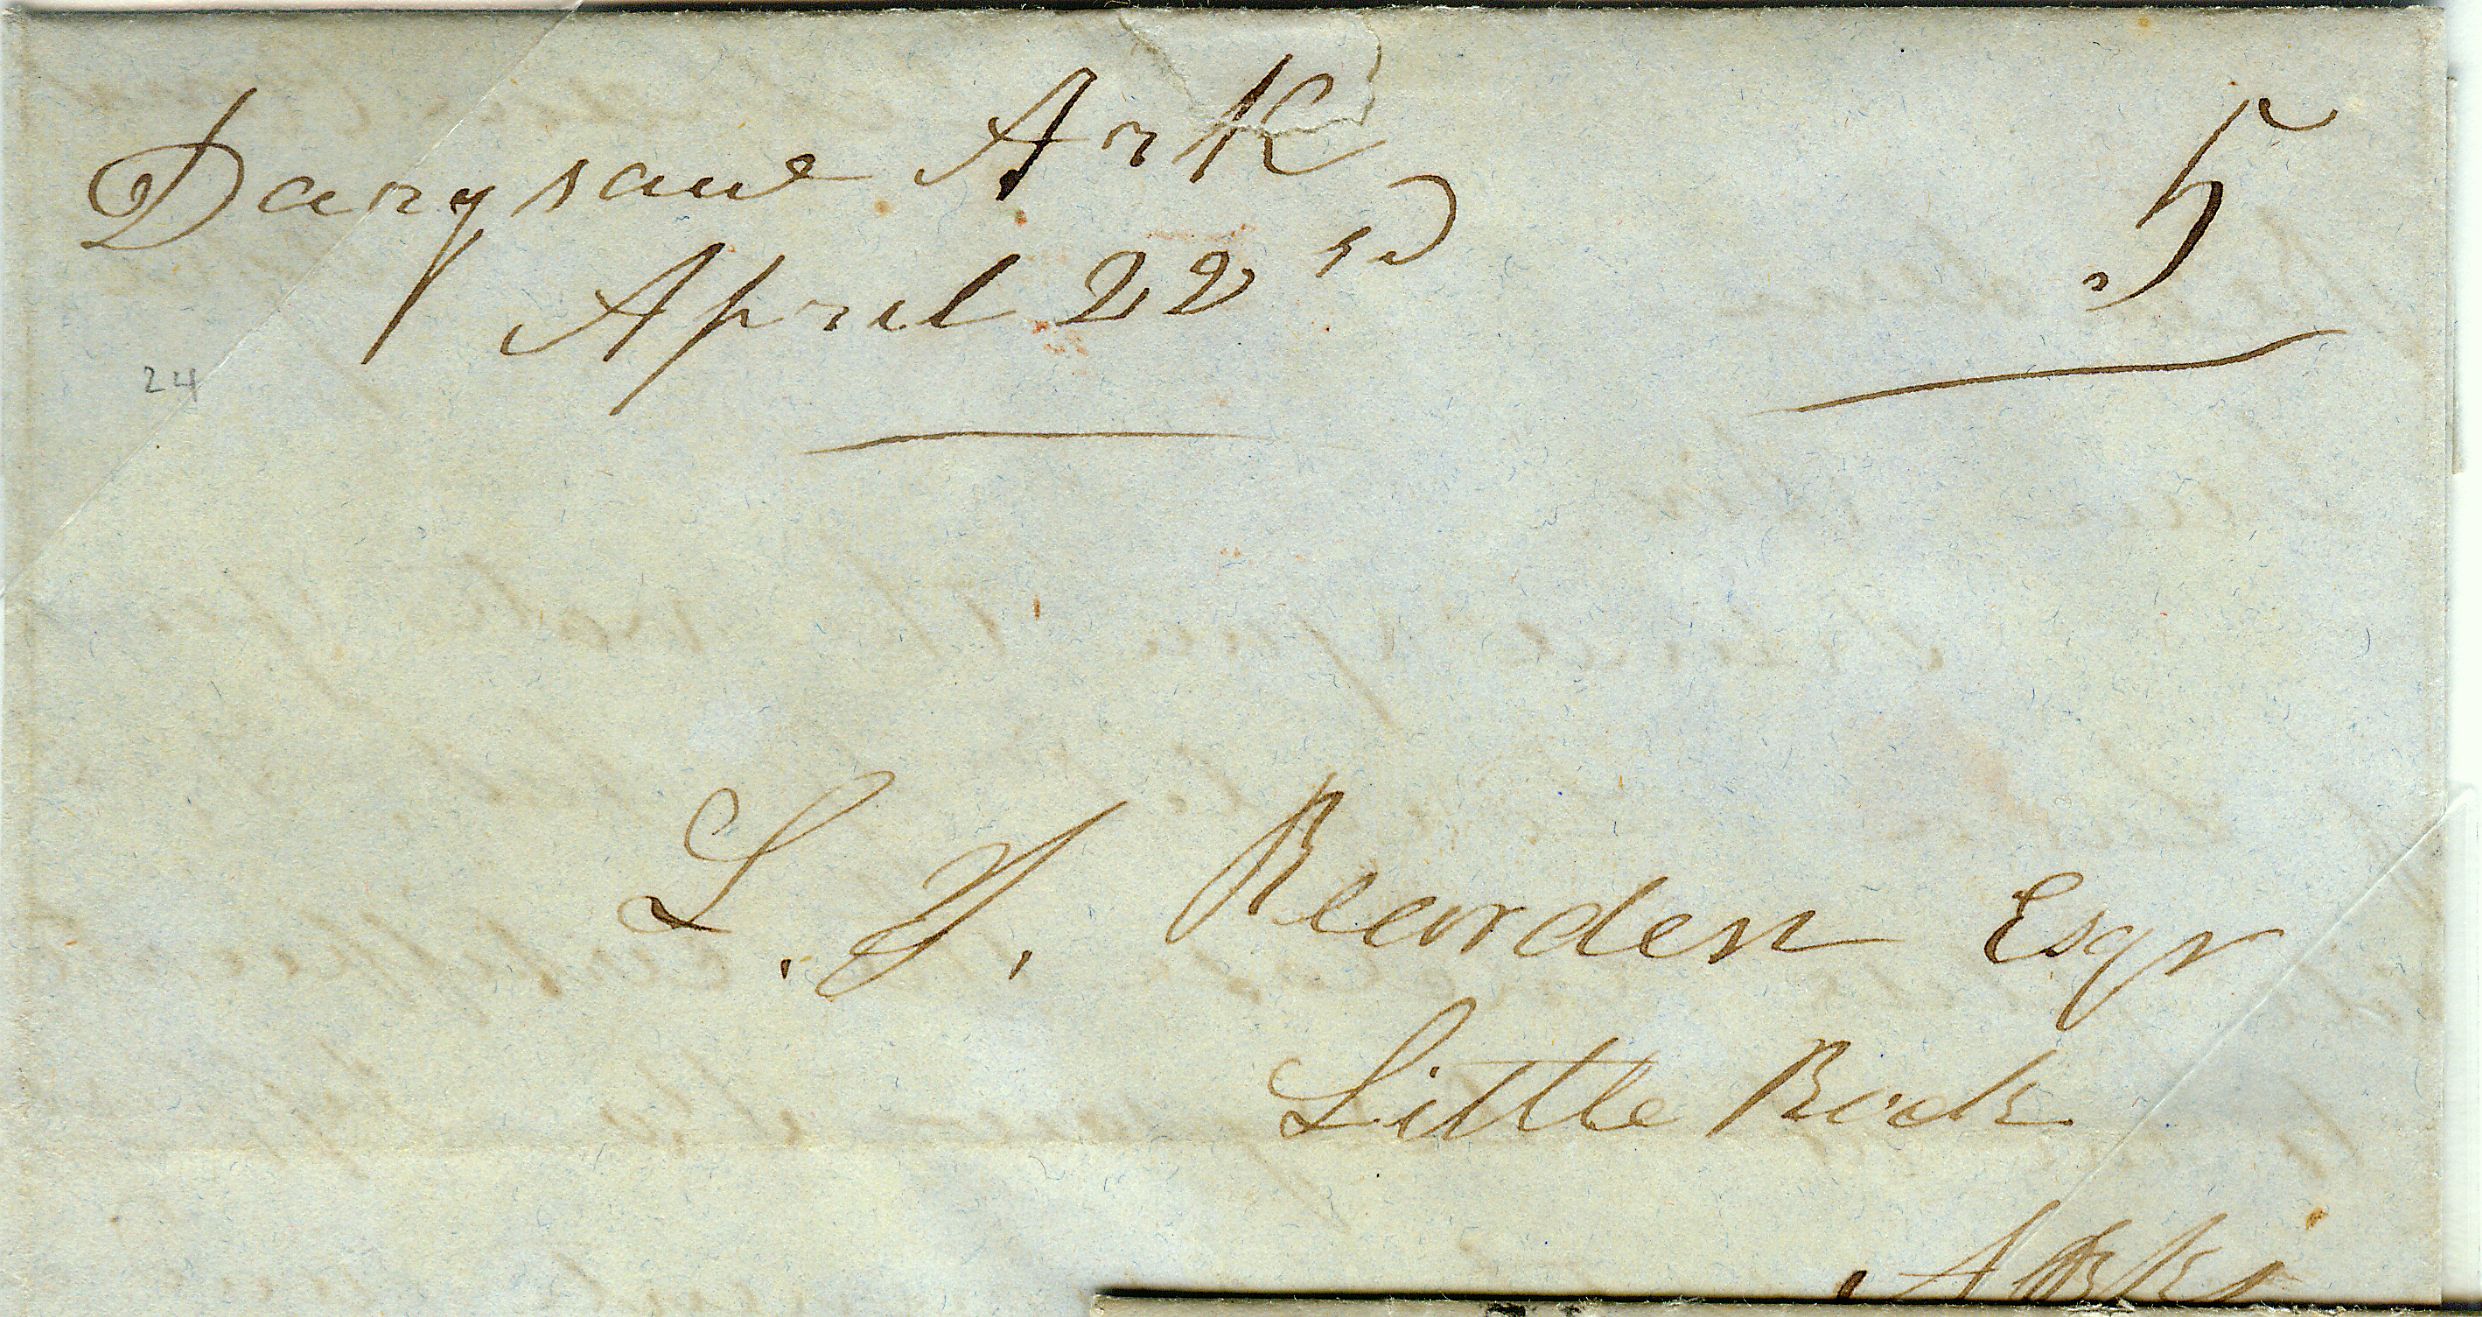 Darysaw Ark
April 22nd
5
24
L. Y. Rearden Esqr
Little Rock
Arks